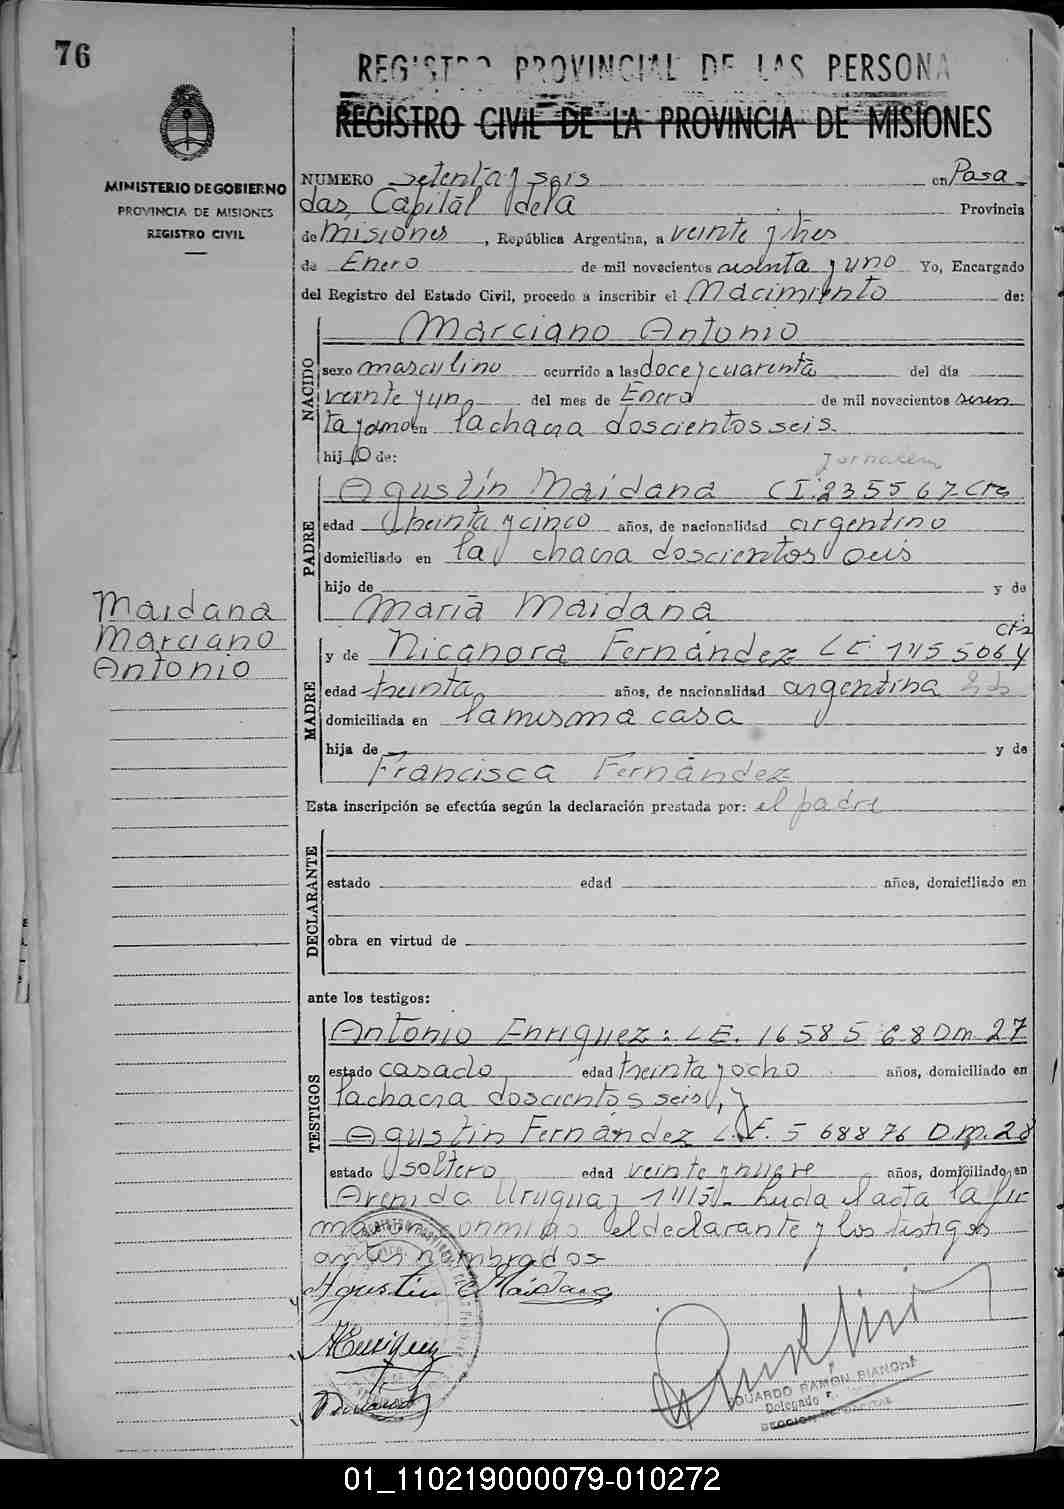 76
REGISTRO PROVINCIAL DE LAS PERSONA
REGISTRO CIVIL DE LA PROVINCIA DE MISIONES
MINISTERIO DE GOBIERNO
PROVINCIA DE MISIONES
REGISTRO CIVIL
NUMERO setenta y seis en Posa
das, Capital de la Provincia
de Misiones, República Argentina, a veinte y tres
de Enero de mil novecientos sesenta y uno Yo, Encargado
del Registro del Estado Civil, procedo a inscribir el Nacimiento de:
NACIDO
Marciano Antonio
sexo masculino ocurrido a las doce y cuarenta del día
veinte y uno del mes de Enero de mil novecientos sesen
ta y uno en la chacra doscientos seis.
hijo de:
Jornalero
PADRE
Agustín Maidana C I. 235567 Ctes
edad treinta y cinco años, de nacionalidad argentino
domiciliado en la chacra doscientos seis
hijo de y de
María Maidana
Maidana
Marciano
Antonio
MADRE
y de Nicanora Fernández
edad treinta años, de nacionalidad argentina
domiciliada en la misma casa
hija de y de
Francisca Fernández
Esta inscripción se efectúa según la declaración prestada por: el padre
DECLARANTE
estado edad años, domiciliado en
obra en virtud de
ante los testigos:
TESTIGOS
Antonio Enriquez: L E. 1658568 D.m. 27
estado casado edad treinta y ocho años, domiciliado en
la chacra doscientos seis, y
Agustín Fernández L. E. 5 68876 D.m. 28
estado soltero edad veinte y nueve años, domiciliado en
Avenida Uruguay 1415. Leida el acta la fir
man conmigo el declarante y los testigos
antes nombrados
Agustin Maidana
AEnriquez
EDUARDO RAMON BIANCHI
Delegado
01_110219000079-010272